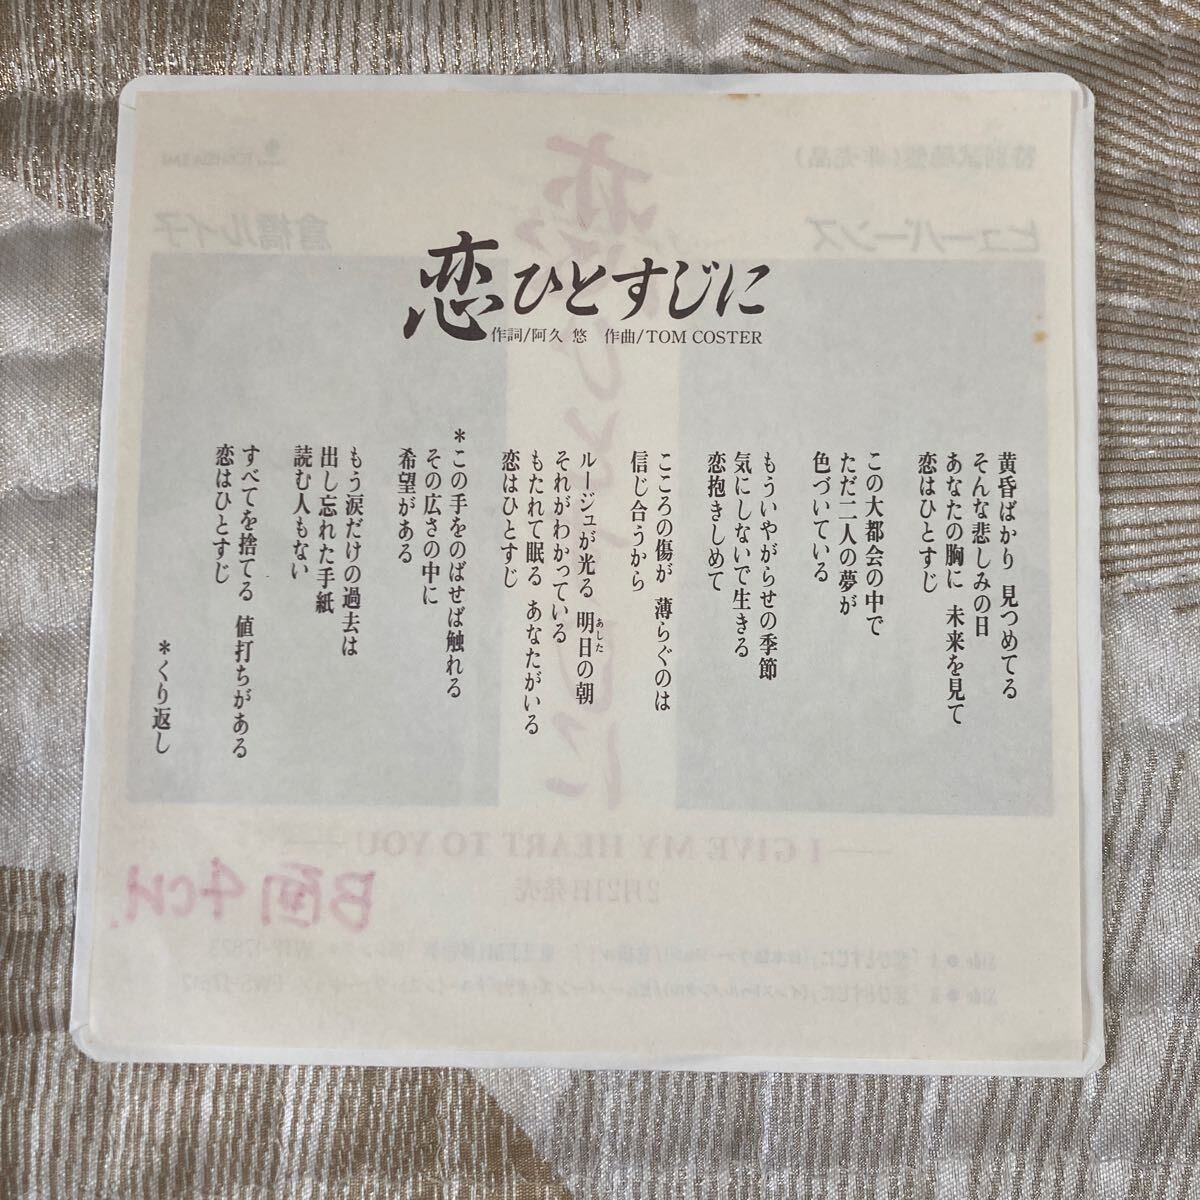 恋ひとすじに
作詞/阿久 悠 作曲/TOM COSTER
黄昏ばかり 見つめてる
そんな悲しみの日
あなたの胸に 未来を見て
恋はひとすじ
この大都会の中で
ただ二人の夢が
色づいている
もういやがらせの季節
気にしないで生きる
恋抱きしめて
こころの傷が 薄らぐのは
信じ合うから
ルージュが光る 明日の朝
あした
それがわかっている
もたれて眠る あなたがいる
恋はひとすじ
*この手をのばせば触れる
その広さの中に
希望がある
もう涙だけの過去は
出し忘れた手紙
読む人もない
すべてを捨てる 値打ちがある
恋はひとすじ
*くり返し
特別試聴盤(非売品)
TOSHIBA EMI
ヒューバーンズ
倉橋ルイ子
恋ひとすじに
I GIVE MY HEART TO YOU
2月21日発売
B面 4CH.